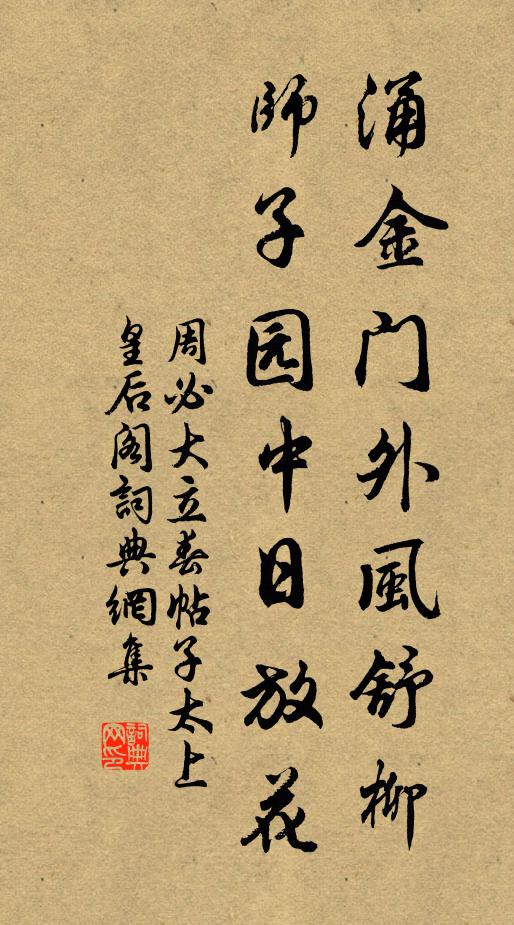 涌金门外風舒柳
師子园中日放花
周必大立春帖子太上
皇后阁詞典網集
詞典網印